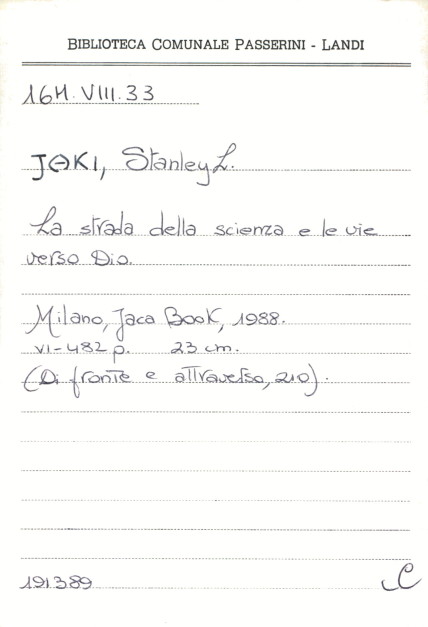 BIBLIOTECA COMUNALE PASSERINI - LANDI
16H.VIII.33
JAKI, Stanley L.
La strada della scienza e le vie
verso Dio.
Milano, Jaca Book, 1988.
VI-482 p. 23 cm.
(Di fronte e attraverso, 210).
191389
C